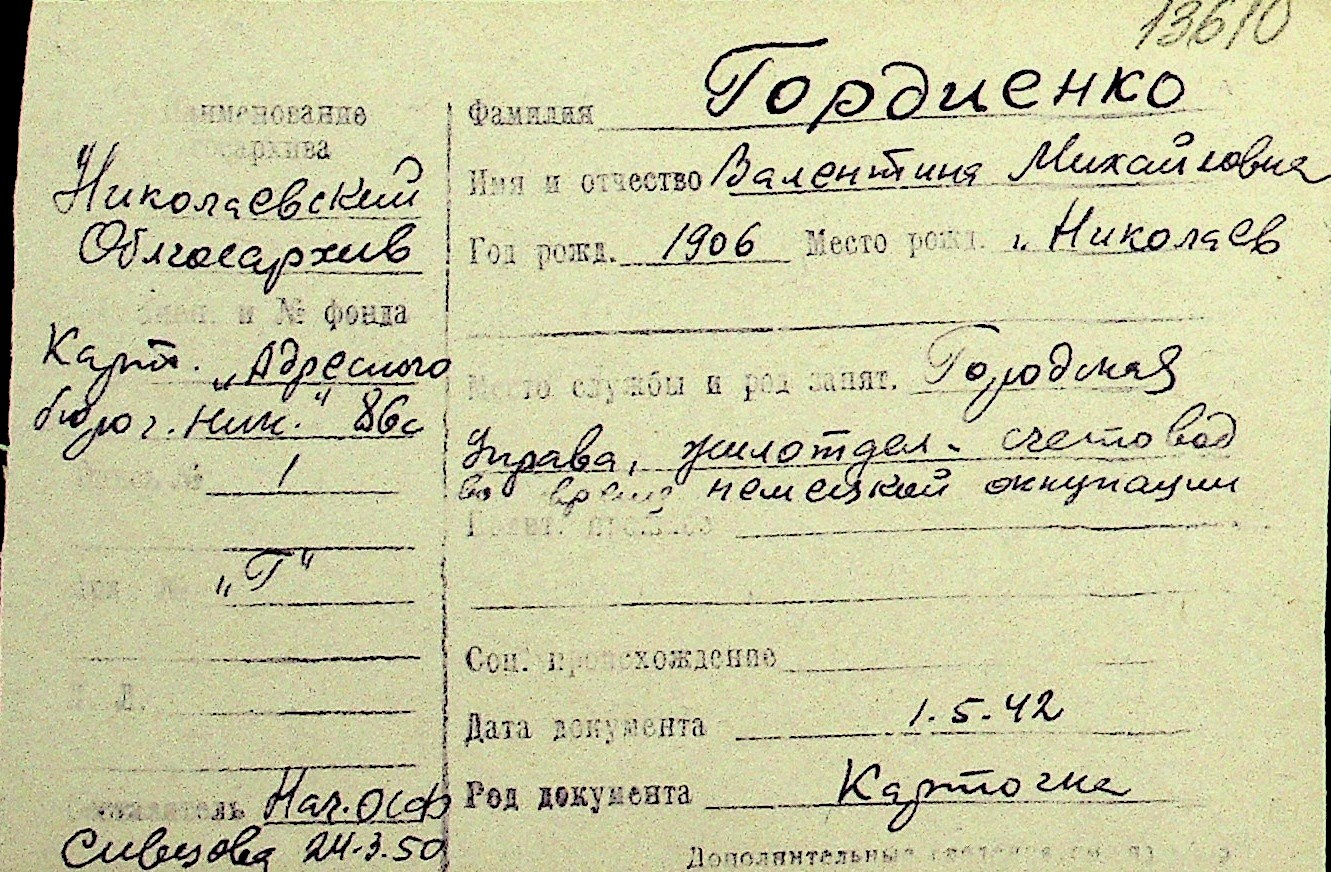 13610
Наименование
госархива
Николаевский
Облгосархив
и № фонда
Карт. "Адресного
бюро г. Ник." 86с
Опись № 1
"Г"
Л. Д.
Составитель Нач. ОСФ
24.3.50
Фамилия Гордиенко
Имя и отчество Валентина Михайловна
Год рожд. 1906 Место рожд. г. Николаев
Место службы и род занят. Городская
Управа, жилотдел - счетовод
во время немецкой оккупации
Полит. прошлое
Соц. происхождение
Дата документа 1.5.42
Род документа Карточка
Дополнительные сведения см. на обор.